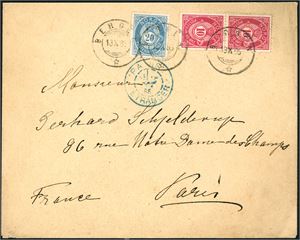 BERGEN
13 X 95
20
10
PARIS
ETRANGER
Monsieur
Gerhard Schjelderup
86 rue Notre Dame des Champs
Paris
France